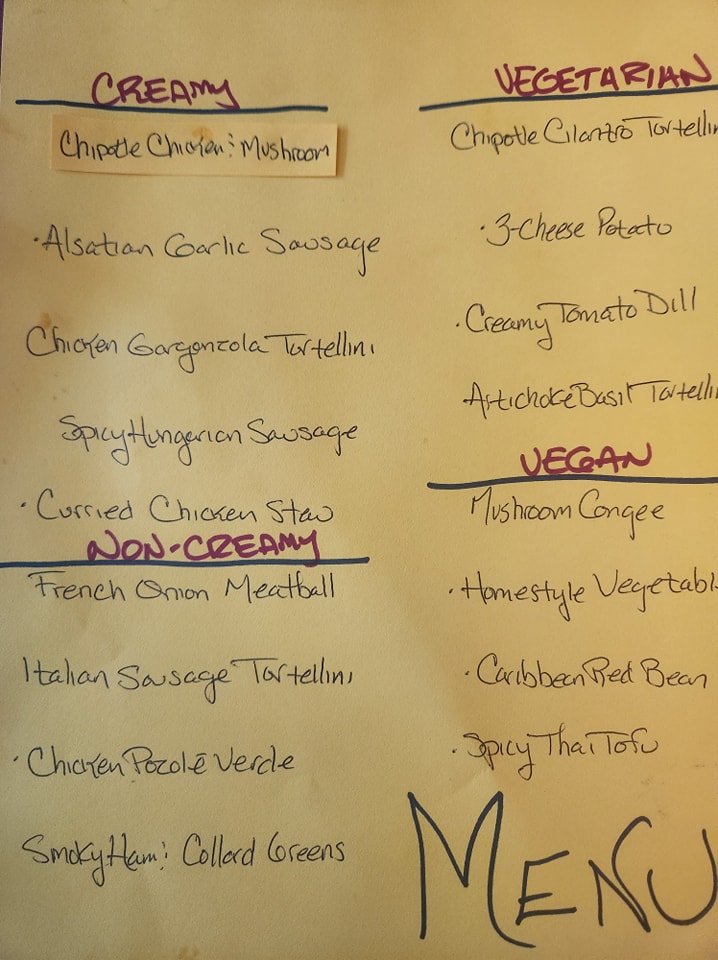 CREAMY
Chipotle Chicken & Mushroom
·Alsatian Garlic Sausage
Chicken Gargonzola Tortellini
Spicy Hungarian Sausage
·Curried Chicken Stew
NON-CREAMY
French Onion Meatball
Italian Sausage Tortellini
·Chicken Pozolé Verde
Smoky Ham & Collard Greens
VEGETARIAN
Chipotle Cilantro Tortellin
·3-Cheese Potato
·Creamy Tomato Dill
Artichoke Basil Tortellin
VEGAN
Mushroom Congee
·Homestyle Vegetabl
·Caribbean Red Bean
·Spicy Thai Tofu
MENU